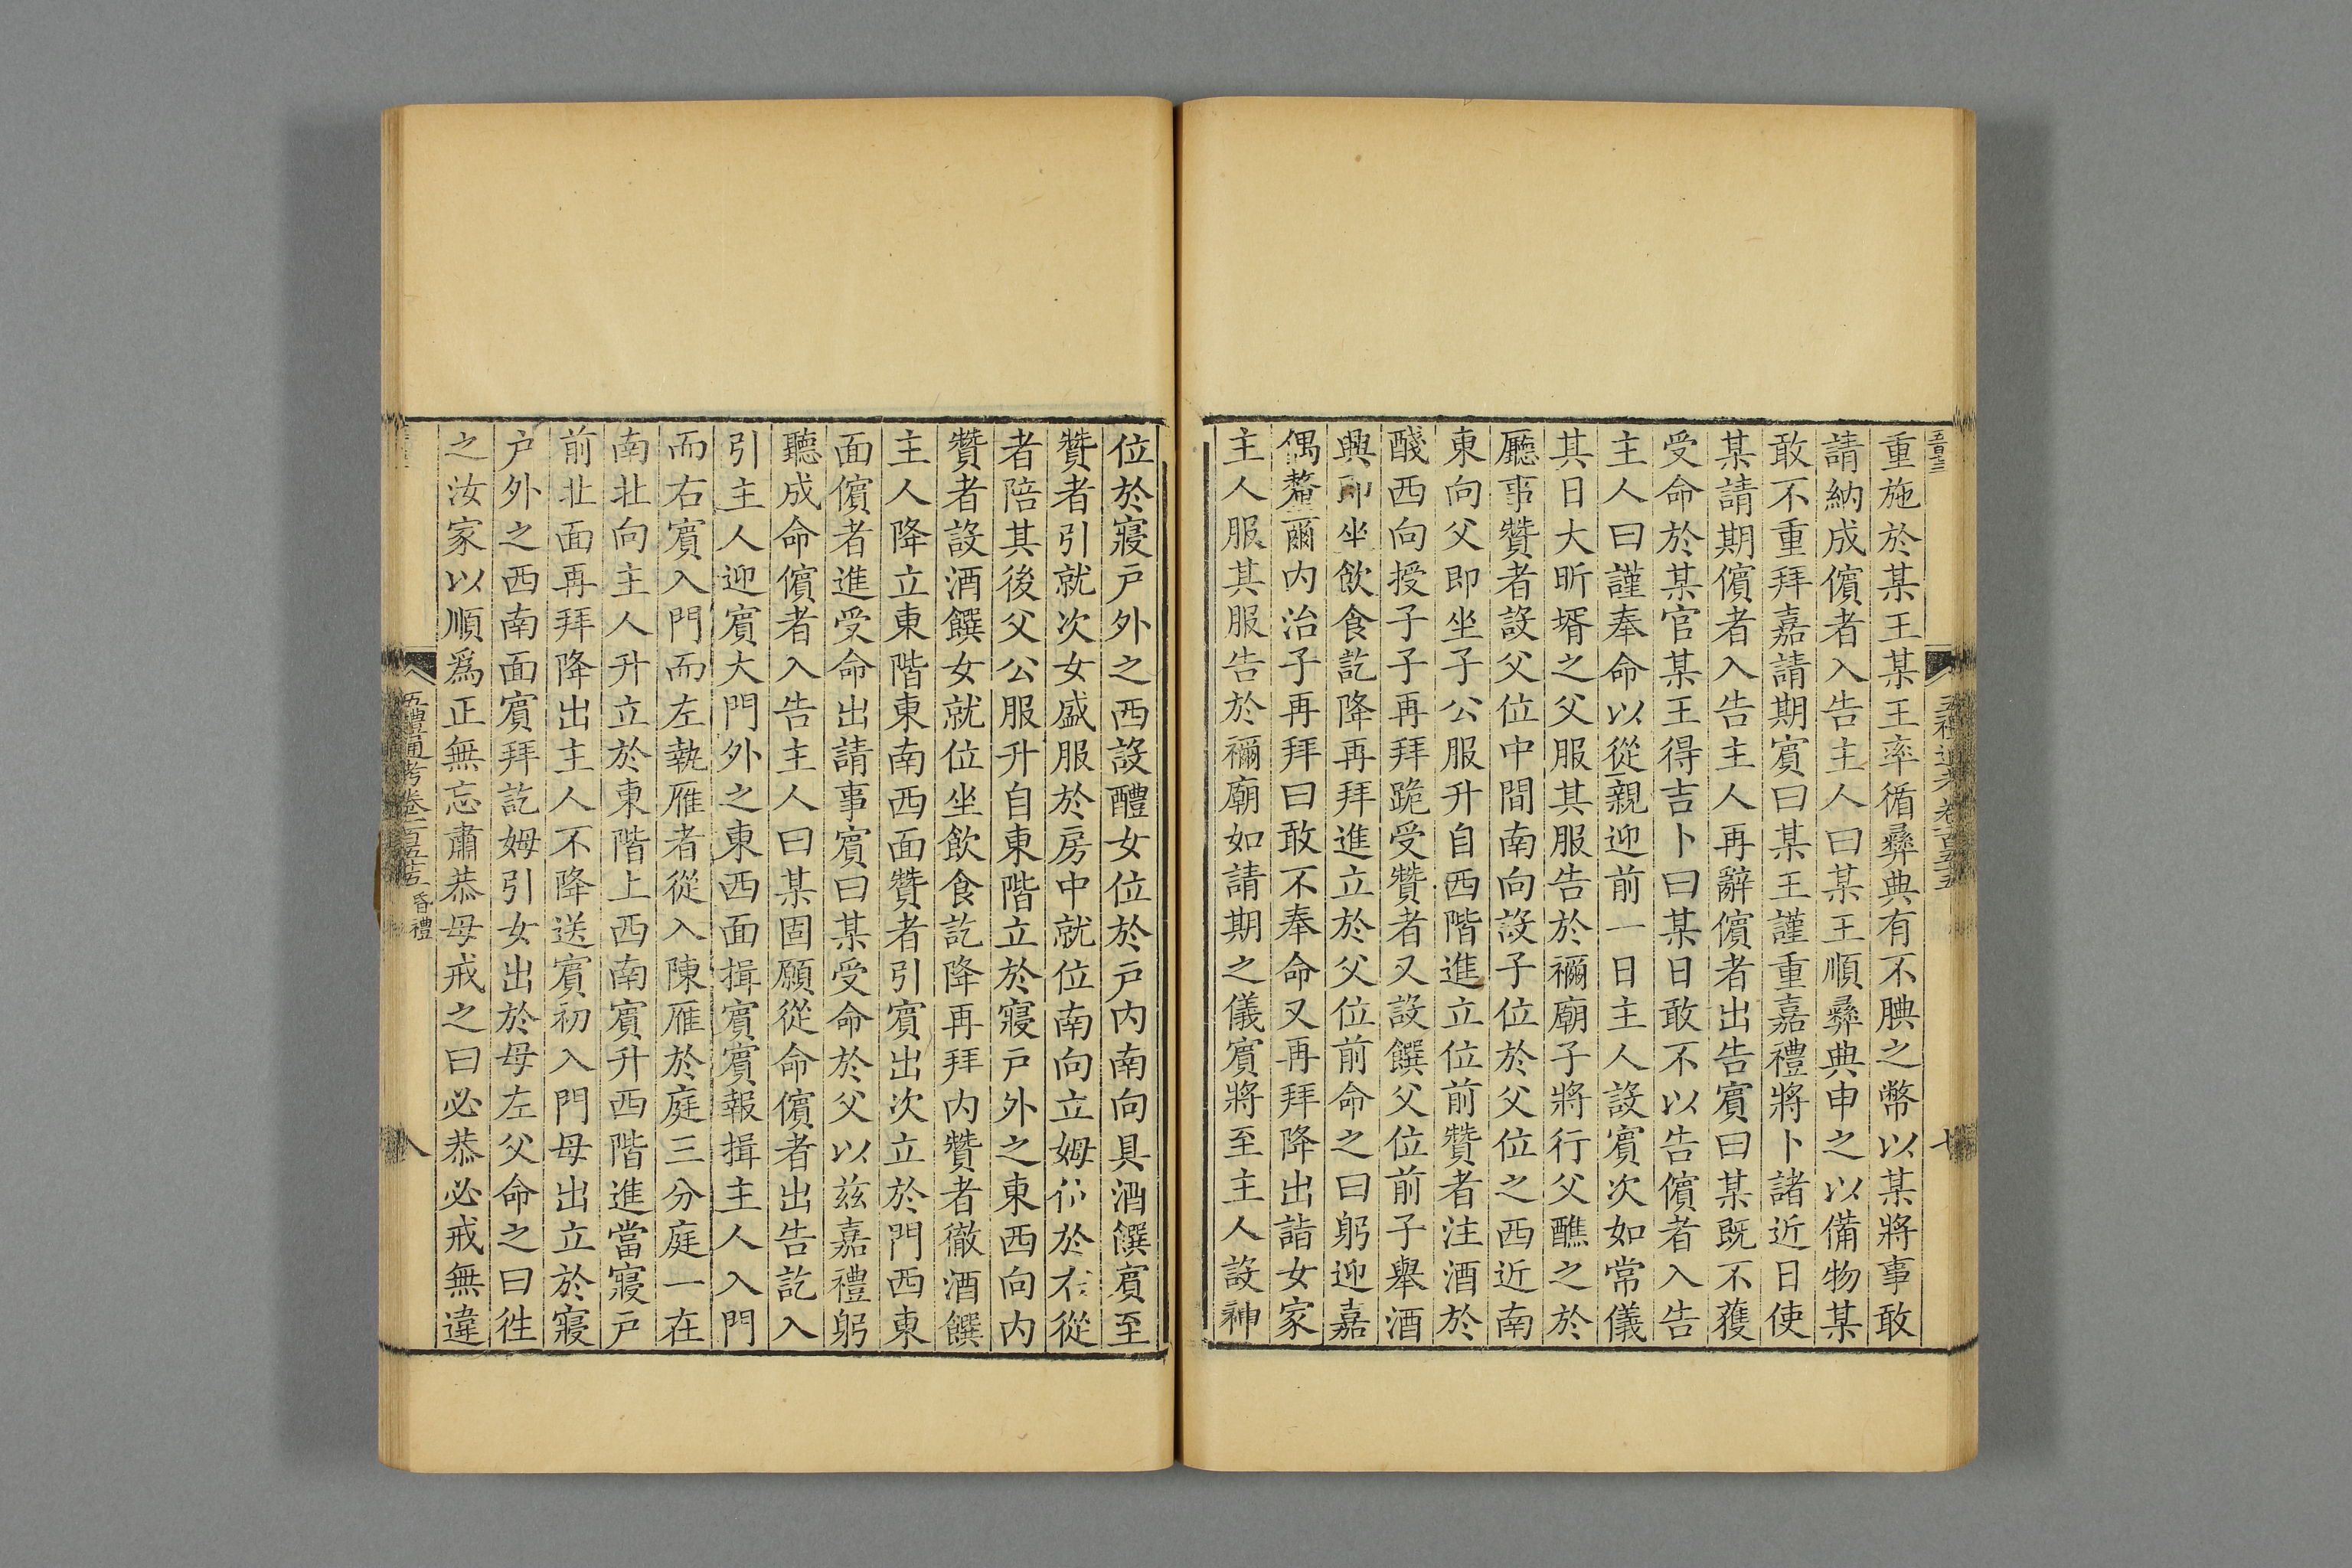 重施於某王某王率循彝典有不腆之幣以某將事敢
請納成儐者入告主人曰某王順彝典申之以備物某
敢不重拜嘉請期賔曰某王謹重嘉禮將卜諸近日使
某請期儐者入告主人再辭儐者出告賔曰某既不獲
受命於某官某王得吉卜曰某日敢不以告儐者入告
主人曰謹奉命以從親迎前一日主人設賔次如常儀
其日大昕壻之父服其服告於禰廟子將行父醮之於
廳事贊者設父位中間南向設子位於父位之西近南
東向父即坐子公服升自西階進立位前贊者注酒於
醆西向授子子再拜跪受贊者又設饌父位前子舉酒
興即坐飲食訖降再拜進立於父位前命之曰躬迎嘉
偶釐爾内治子再拜曰敢不奉命又再拜降出詣女家
主人服其服告於禰廟如請期之儀賔將至主人設神
位於寢戸外之西設醴女位於戸内南向具酒饌賔至
贊者引就次女盛服於房中就位南向立姆位於右從
者陪其後父公服升自東階立於寢戸外之東西向内
贊者設酒饌女就位坐飲食訖降再拜内贊者徹酒饌
主人降立東階東南西面贊者引賔出次立於門西東
面儐者進受命出請事賔曰某受命於父以兹嘉禮躬
聽成命儐者入告主人曰某固願從命儐者出告訖入
引主人迎賔大門外之東西面揖賔賔報揖主人入門
而右賔入門而左執雁者從入陳雁於庭三分庭一在
南北向主人升立於東階上西南賔升西階進當寢戸
前北面再拜降出主人不降送賔初入門母出立於寢
戸外之西南面賔拜訖姆引女出於母左父命之曰徃
之汝家以順爲正無忘肅恭母戒之曰必恭必戒無違
五禮通考卷一百五十五 昏禮
八